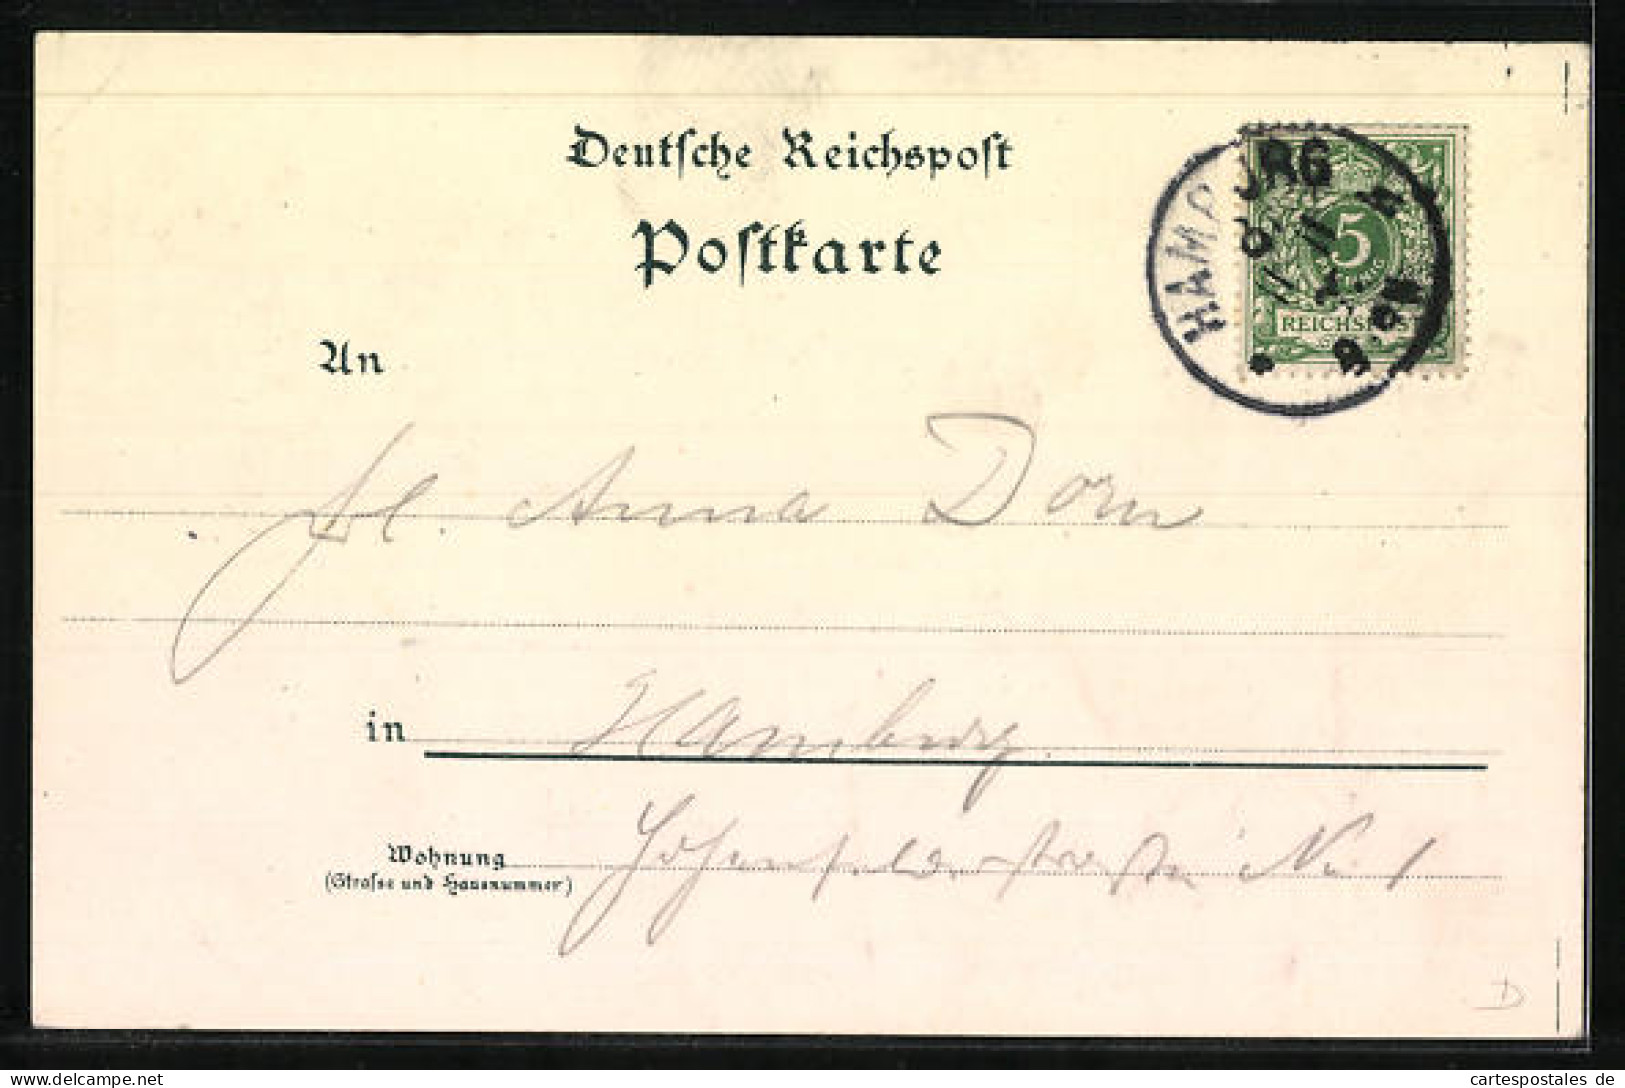 Deutsche Reichspost
Postkarte
HAMBURG
5
REICHSPOST
An
Frl. Anna Dorn
in Hamburg
Wohnung
(Strasse und Hausnummer)
No 1
D
cartespostales de